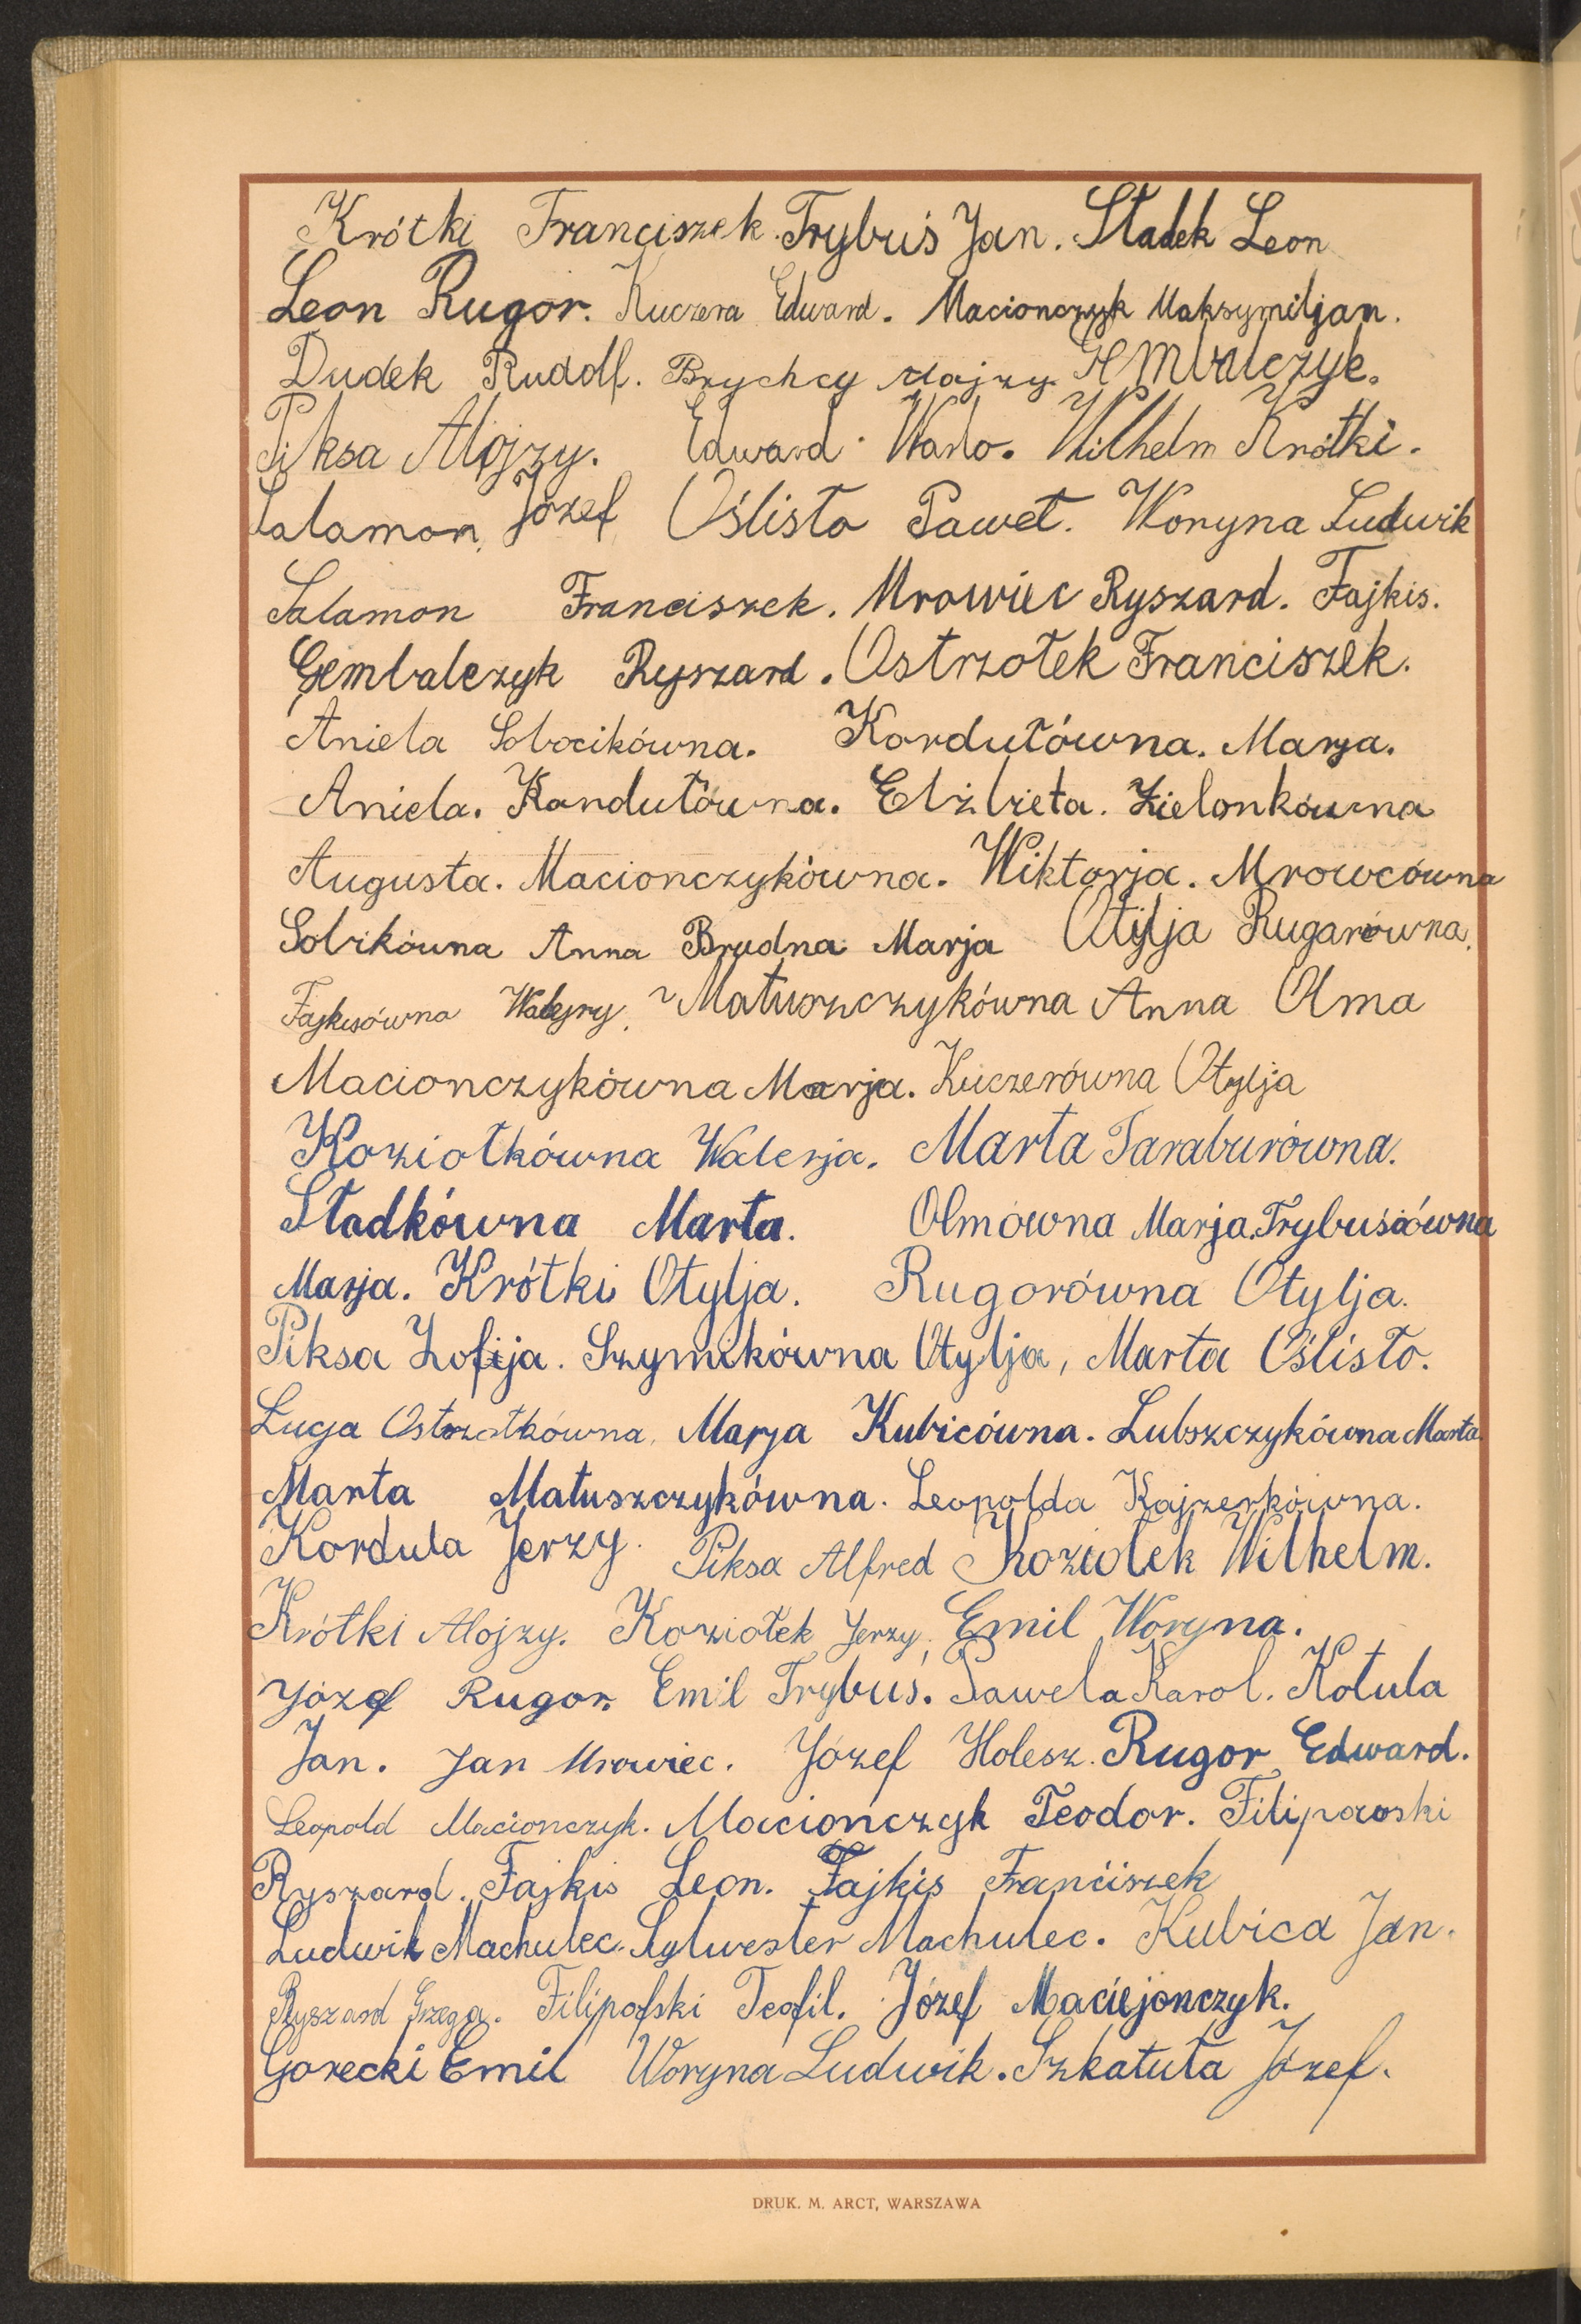 Krótki Franciszek. Trybuś Jan. Sładek Leon
Leon Rugor. Kuczera Edward. Macionczyk Maksymiljan.
Dudek Rudolf. Brychcy Alojzy. Gembalczyk.
Piksa Alojzy. Edward Warło. Wilhelm Krótki.
Salamon, Józef Oślisto Paweł. Woryna Ludwik
Salamon Franciszek. Mrowiec Ryszard. Fajkis.
Gembalczyk Ryszard. Ostrzołek Franciszek.
Aniela Sobocikówna. Kordułówna. Marja.
Aniela. Kordułówna. Elżbieta. Zielonkówna
Augusta. Macionczykówna. Wiktorja. Mrowcówna
Sobikówna Anna Brudna Marja Otylja Rugarówna.
Fajkisówna Matuszczykówna Anna Olma
Macionczykówna Marja. Kuczerówna Otylja
Koziołkówna Walerja. Marta Taraburówna.
Sładkówna Marta. Olmówna Marja. Trybusiówna
Marja. Krótki Otylja. Rugorówna Otylja.
Piksa Zofija. Szymikówna Otylja, Marta Oślisło.
Łucja Ostrzołkówna. Marja Kubicówna. Lubszczykówna Marta.
Marta Matuszczykówna. Leopolda Kajzerkówna.
Kordula Jerzy. Piksa Alfred Koziołek Wilhelm.
Krótki Alojzy. Koziołek Jerzy. Emil Woryna.
Józef Rugor. Emil Trybuś. Pawela Karol. Kotula
Jan. Jan Mrowiec. Józef Holesz. Rugor Edward.
Leopold Macionczyk. Macionczyk Teodor. Filipowski
Ryszard. Fajkis Leon. Fajkis Franciszek
Ludwik Machulec. Sylwester Machulec. Kubica Jan.
Ryszard Grzega. Filipofski Teofil. Józef Maciejonczyk.
Gorecki Emil Woryna Ludwik. Szkatuła Józef.
DRUK. M. ARCT, WARSZAWA